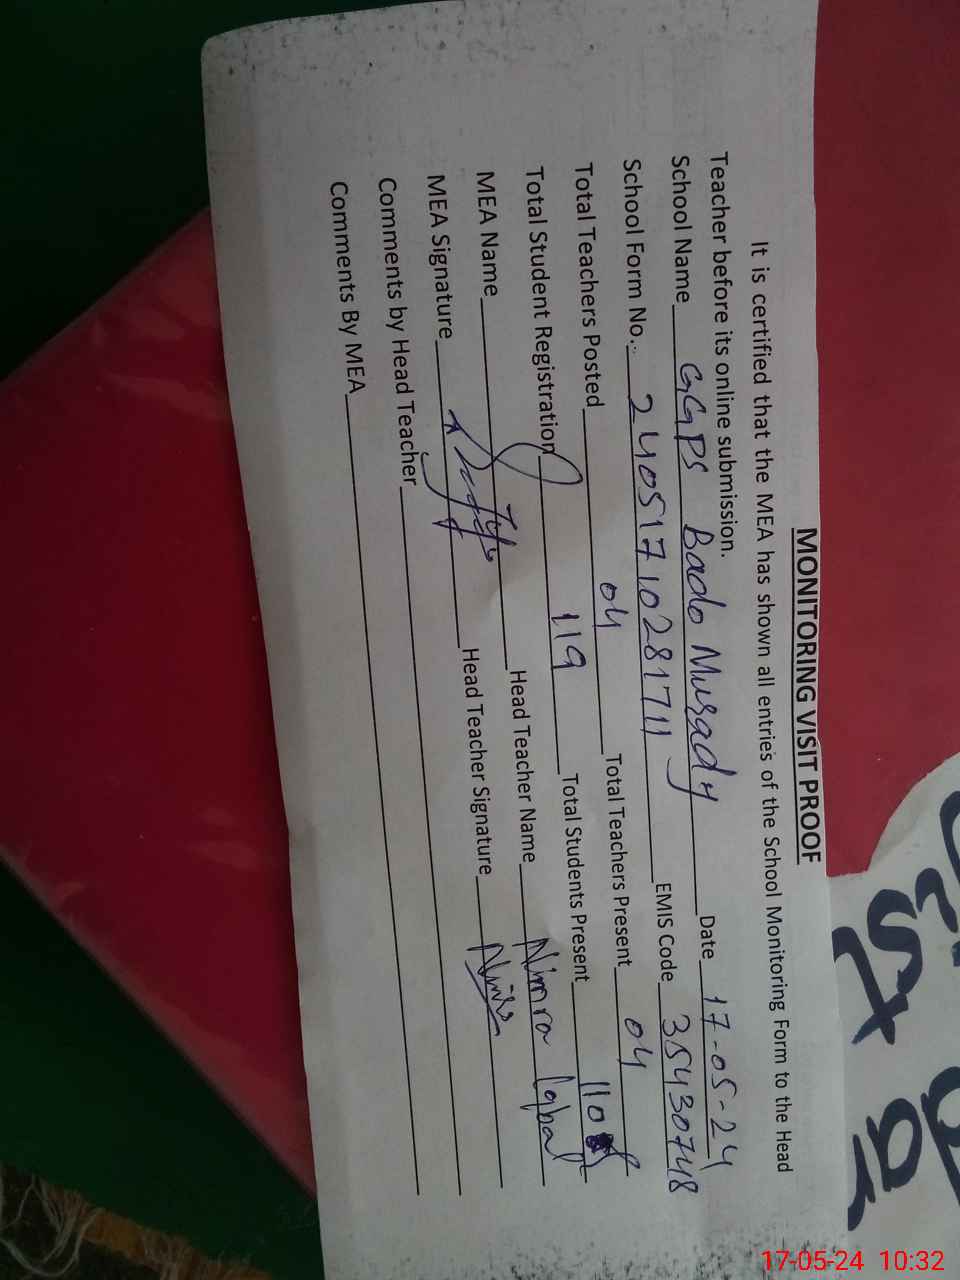 MONITORING VISIT PROOF
It is certified that the MEA has shown all entries of the School Monitoring Form to the Head
Teacher before its online submission.
School Name GGPS Bado Murady Date 17-05-24
School Form No.: 24051710281711 EMIS Code 35430748
Total Teachers Posted 04 Total Teachers Present 04
Total Student Registration 119 Total Students Present 110
MEA Name Head Teacher Name Nimra Iqbal
MEA Signature Head Teacher Signature
Comments by Head Teacher
Comments By MEA
17-05-24 10:32